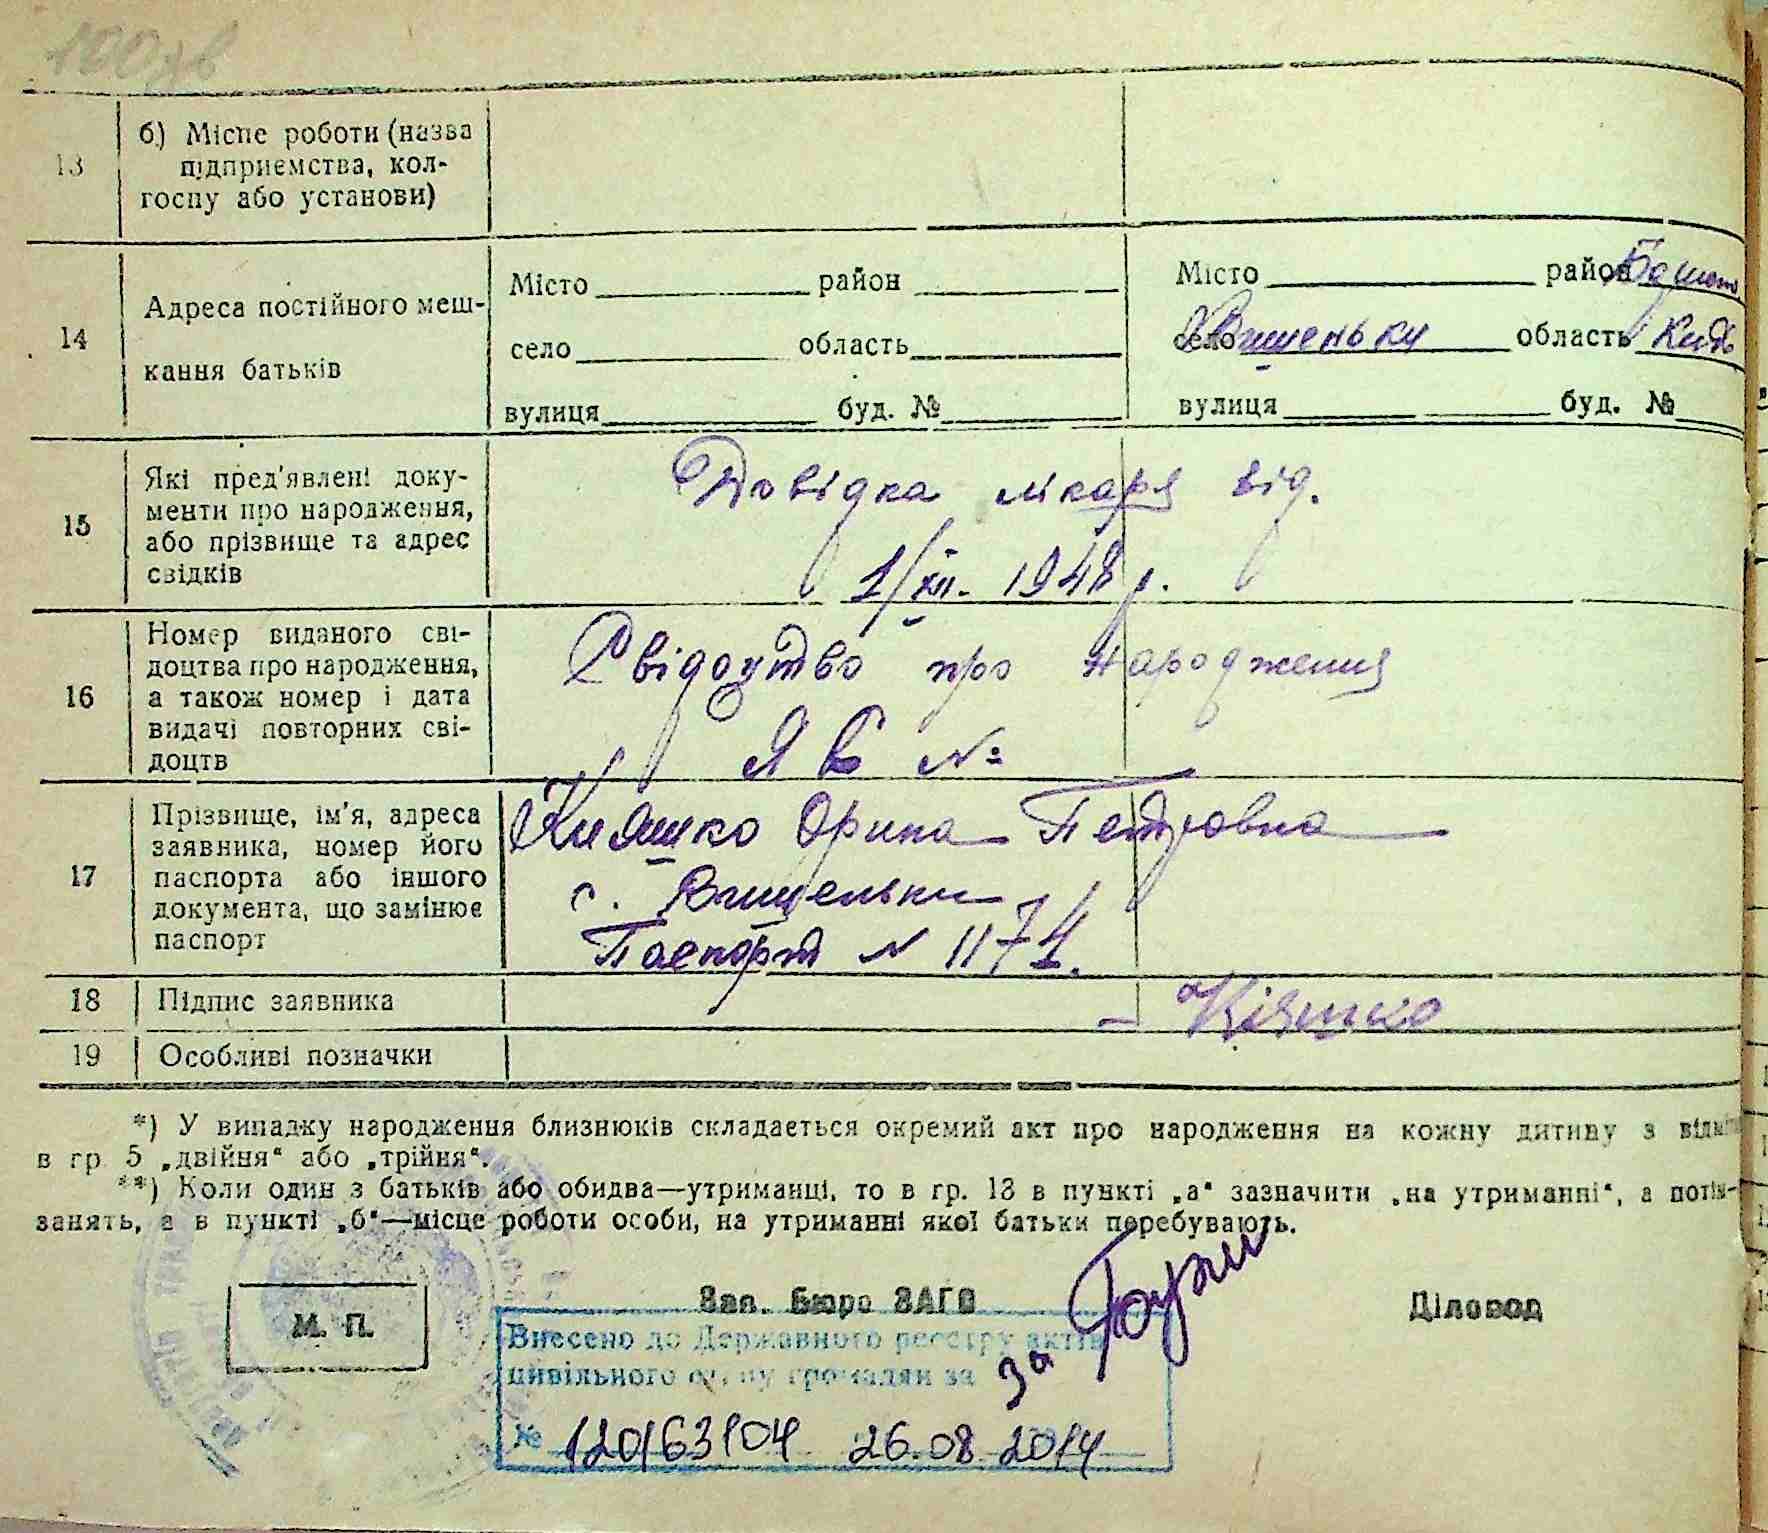 100
13
б) Місце роботи (назва
підприємства, кол-
госпу або установи)
14
Адреса постійного меш-
кання батьків
Місто район
село область
вулиця буд. №
Місто район
село Вишеньки область Київ
вулиця буд. №
15
Які пред'явлені доку-
менти про народження,
або прізвище та адрес
свідків
Довідка лікаря від.
1/XII. 1948 р.
16
Номер виданого сві-
доцтва про народження,
а також номер і дата
видачі повторних сві-
доцтв
Свідоцтво про народження
ЯБ №
17
Прізвище, ім'я, адреса
заявника, номер його
паспорта або іншого
документа, що замінює
паспорт
Кияшко Орина Петровна
с. Вишеньки
Паспорт N 1174.
18 Підпис заявника Кіяшко
19 Особливі позначки
*) У випадку народження близнюків складається окремий акт про народження на кожну дитину з відміт
в гр 5 „двійня“ або „трійня“.
**) Коли один з батьків або обидва—утриманці, то в гр. 13 в пункті „а“ зазначити „на утриманні“, а потім-
занять, а в пункті „б“—місце роботи особи, на утриманні якої батьки перебувають.
М. П.
Зав. Бюро ЗАГС
Діловод
Внесено до Державного реєстру актів
цивільного стану громадян за
за
№ 120163104 26.08.2014